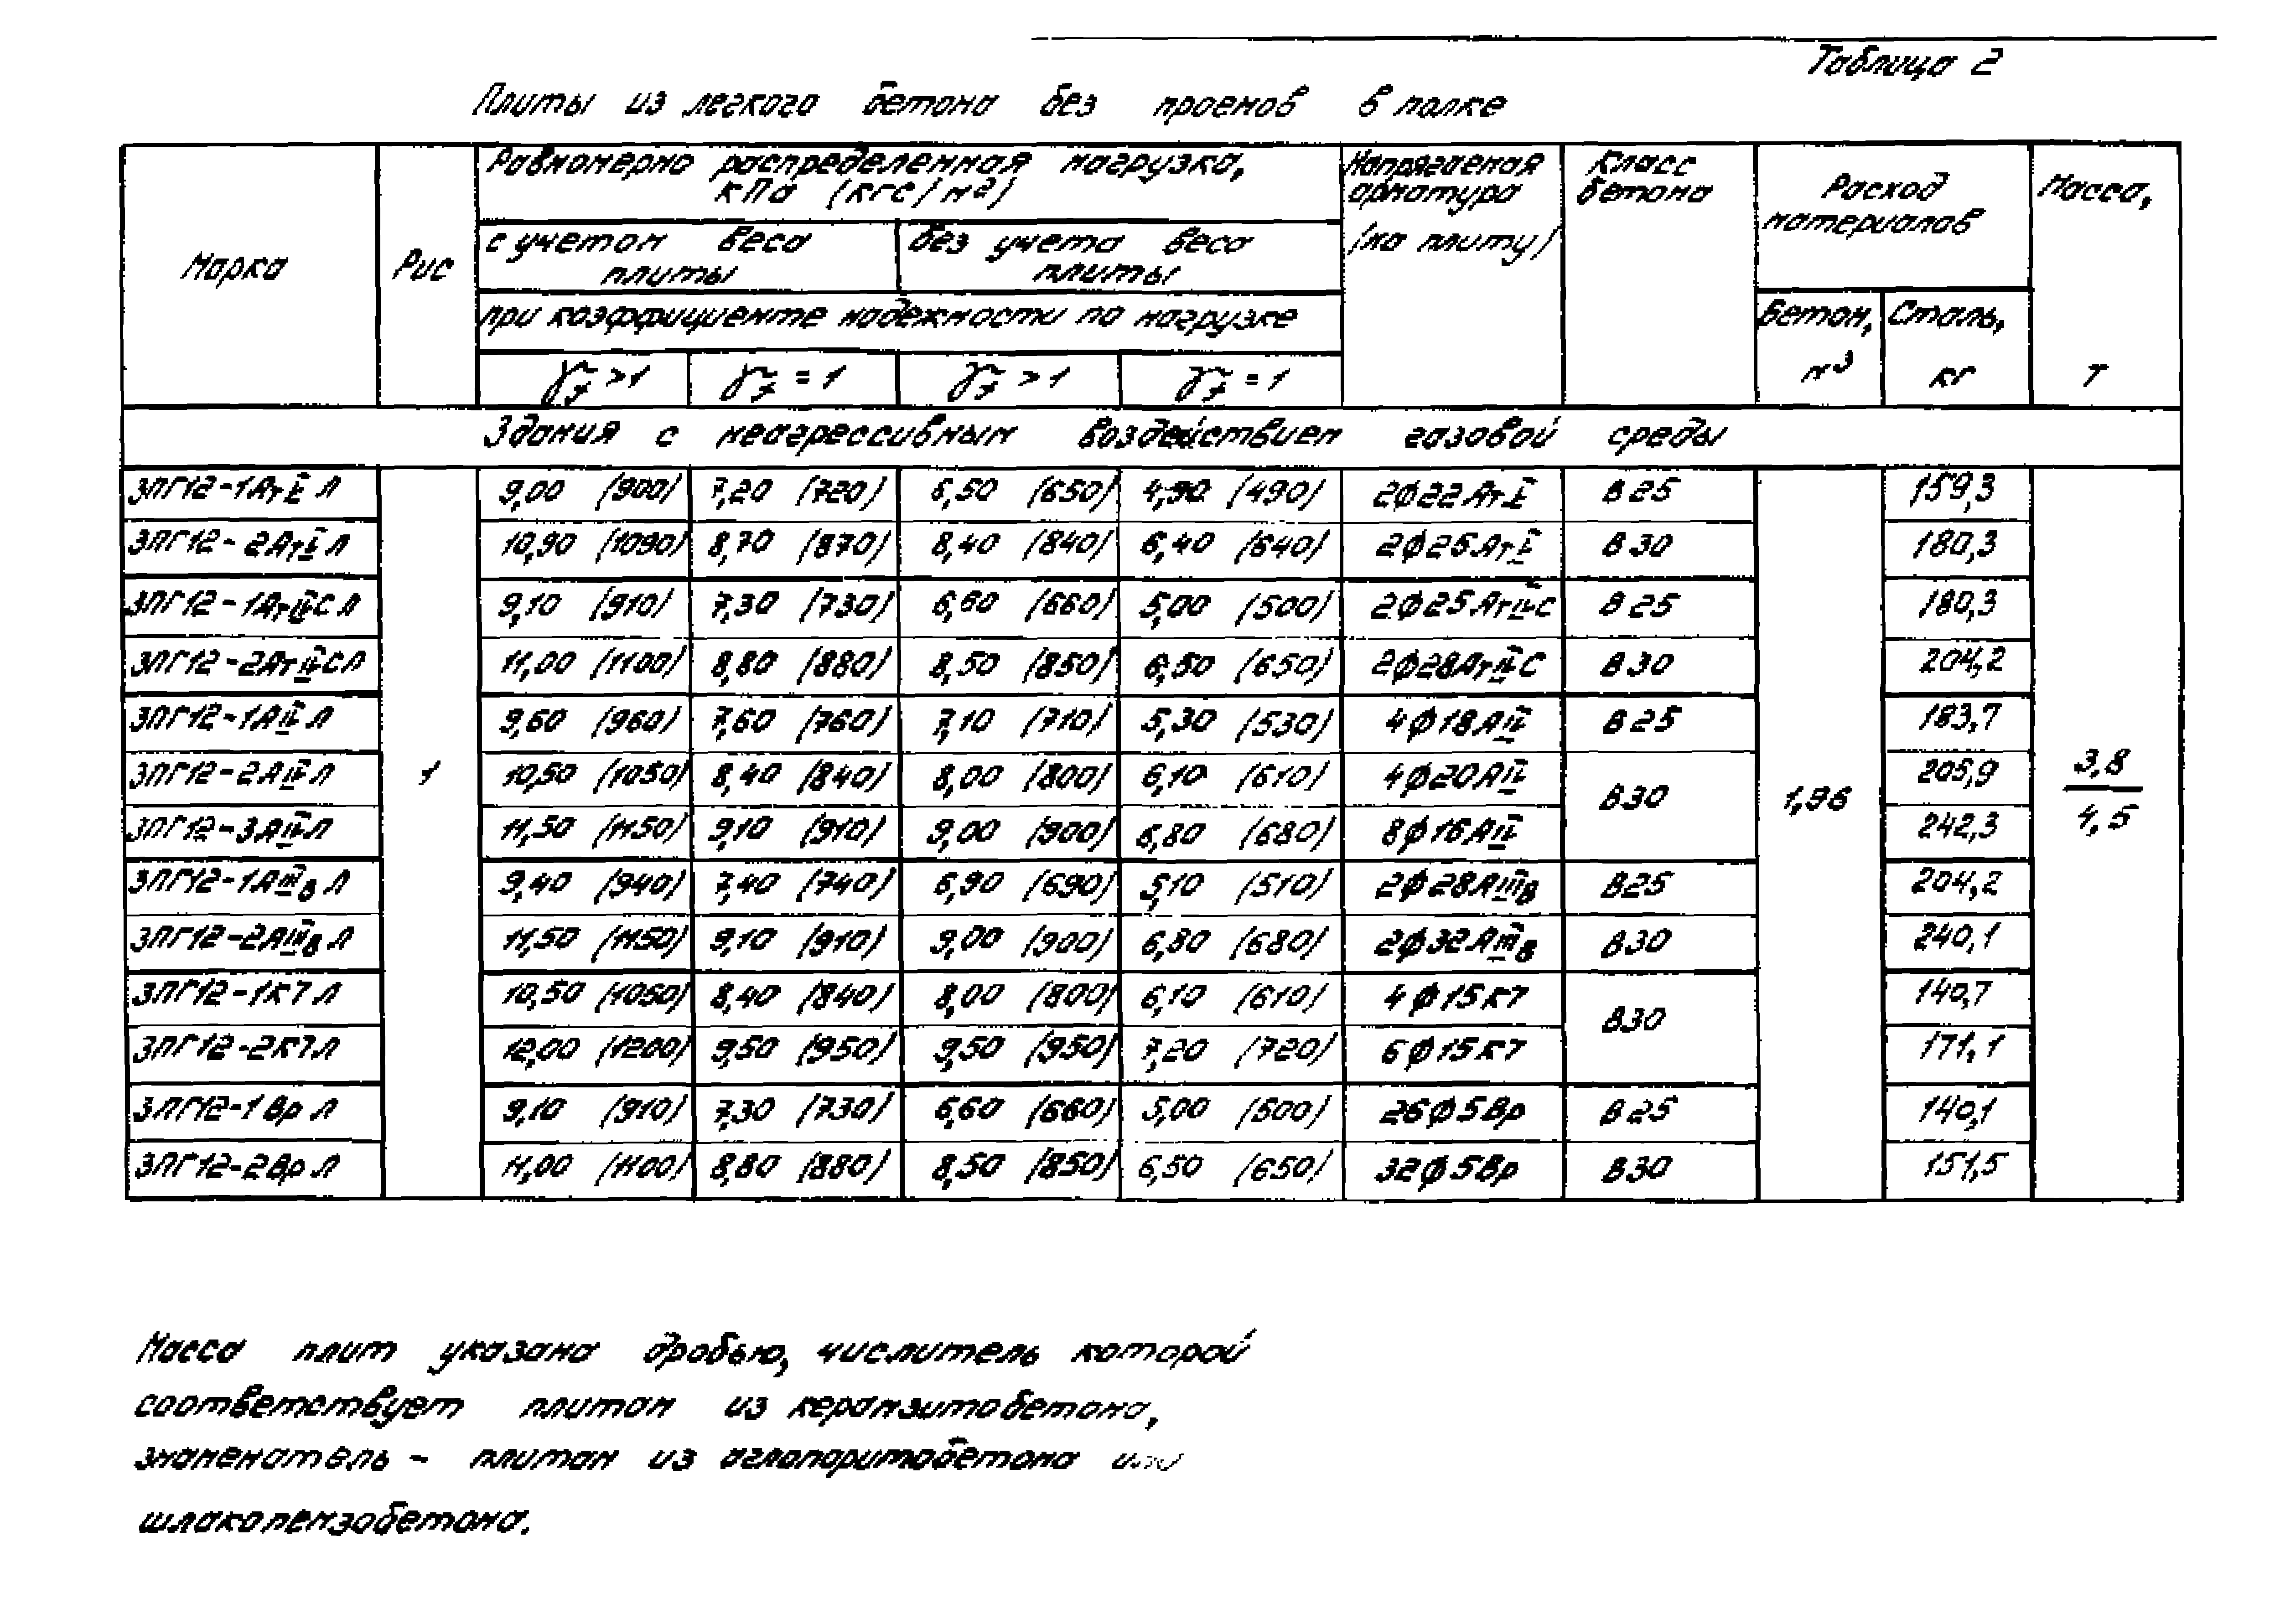 Таблица 2
Плиты из легкого бетона без проемов в полке
Марка
Рис
Равномерно распределенная нагрузка,
кПа (кгс/м²)
с учетом веса
плиты
без учета веса
плиты
при коэффициенте надежности по нагрузке
γf >1 γf =1 γf >1 γf =1
Напрягаемая
арматура
(на плиту)
Класс
бетона
Расход
материалов
Бетон,
м³
Сталь,
кг
Масса,
т
Здания с неагрессивным воздействием газовой среды
3ПГ12-1АтV Л 9,00 (900) 7,20 (720) 6,50 (650) 4,90 (490) 2ф22АтV В25 159,3
3ПГ12-2АтV Л 10,90 (1090) 8,70 (870) 8,40 (840) 6,40 (640) 2ф25АтV В30 180,3
3ПГ12-1АтIVС Л 9,10 (910) 7,30 (730) 6,60 (660) 5,00 (500) 2ф25АтIVС В25 180,3
3ПГ12-2АтIVС Л 11,00 (1100) 8,80 (880) 8,50 (850) 6,50 (650) 2ф28АтIVС В30 204,2
3ПГ12-1АIV Л 9,60 (960) 7,60 (760) 7,10 (710) 5,30 (530) 4ф18АIV В25 183,7
3ПГ12-2АIV Л 1 10,50 (1050) 8,40 (840) 8,00 (800) 6,10 (610) 4ф20АIV В30 1,96 205,9 3,8
3ПГ12-3АIV Л 11,50 (1150) 9,10 (910) 9,00 (900) 6,80 (680) 8ф16АIV 242,3 4,5
3ПГ12-1АIIIв Л 9,40 (940) 7,40 (740) 6,90 (690) 5,10 (510) 2ф28АIIIв В25 204,2
3ПГ12-2АIIIв Л 11,50 (1150) 9,10 (910) 9,00 (900) 6,80 (680) 2ф32АIIIв В30 240,1
3ПГ12-1К7 Л 10,50 (1050) 8,40 (840) 8,00 (800) 6,10 (610) 4ф15К7 В30 140,7
3ПГ12-2К7Л 12,00 (1200) 9,50 (950) 9,50 (950) 7,20 (720) 6ф15К7 171,1
3ПГ12-1Вр Л 9,10 (910) 7,30 (730) 6,60 (660) 5,00 (500) 26ф5Вр В25 140,1
3ПГ12-2Вр Л 11,00 (1100) 8,80 (880) 8,50 (850) 6,50 (650) 32ф5Вр В30 151,5
Масса плит указана дробью, числитель которой
соответствует плитам из керамзитобетона,
знаменатель - плитам из аглопоритобетона или
шлакопемзобетона.